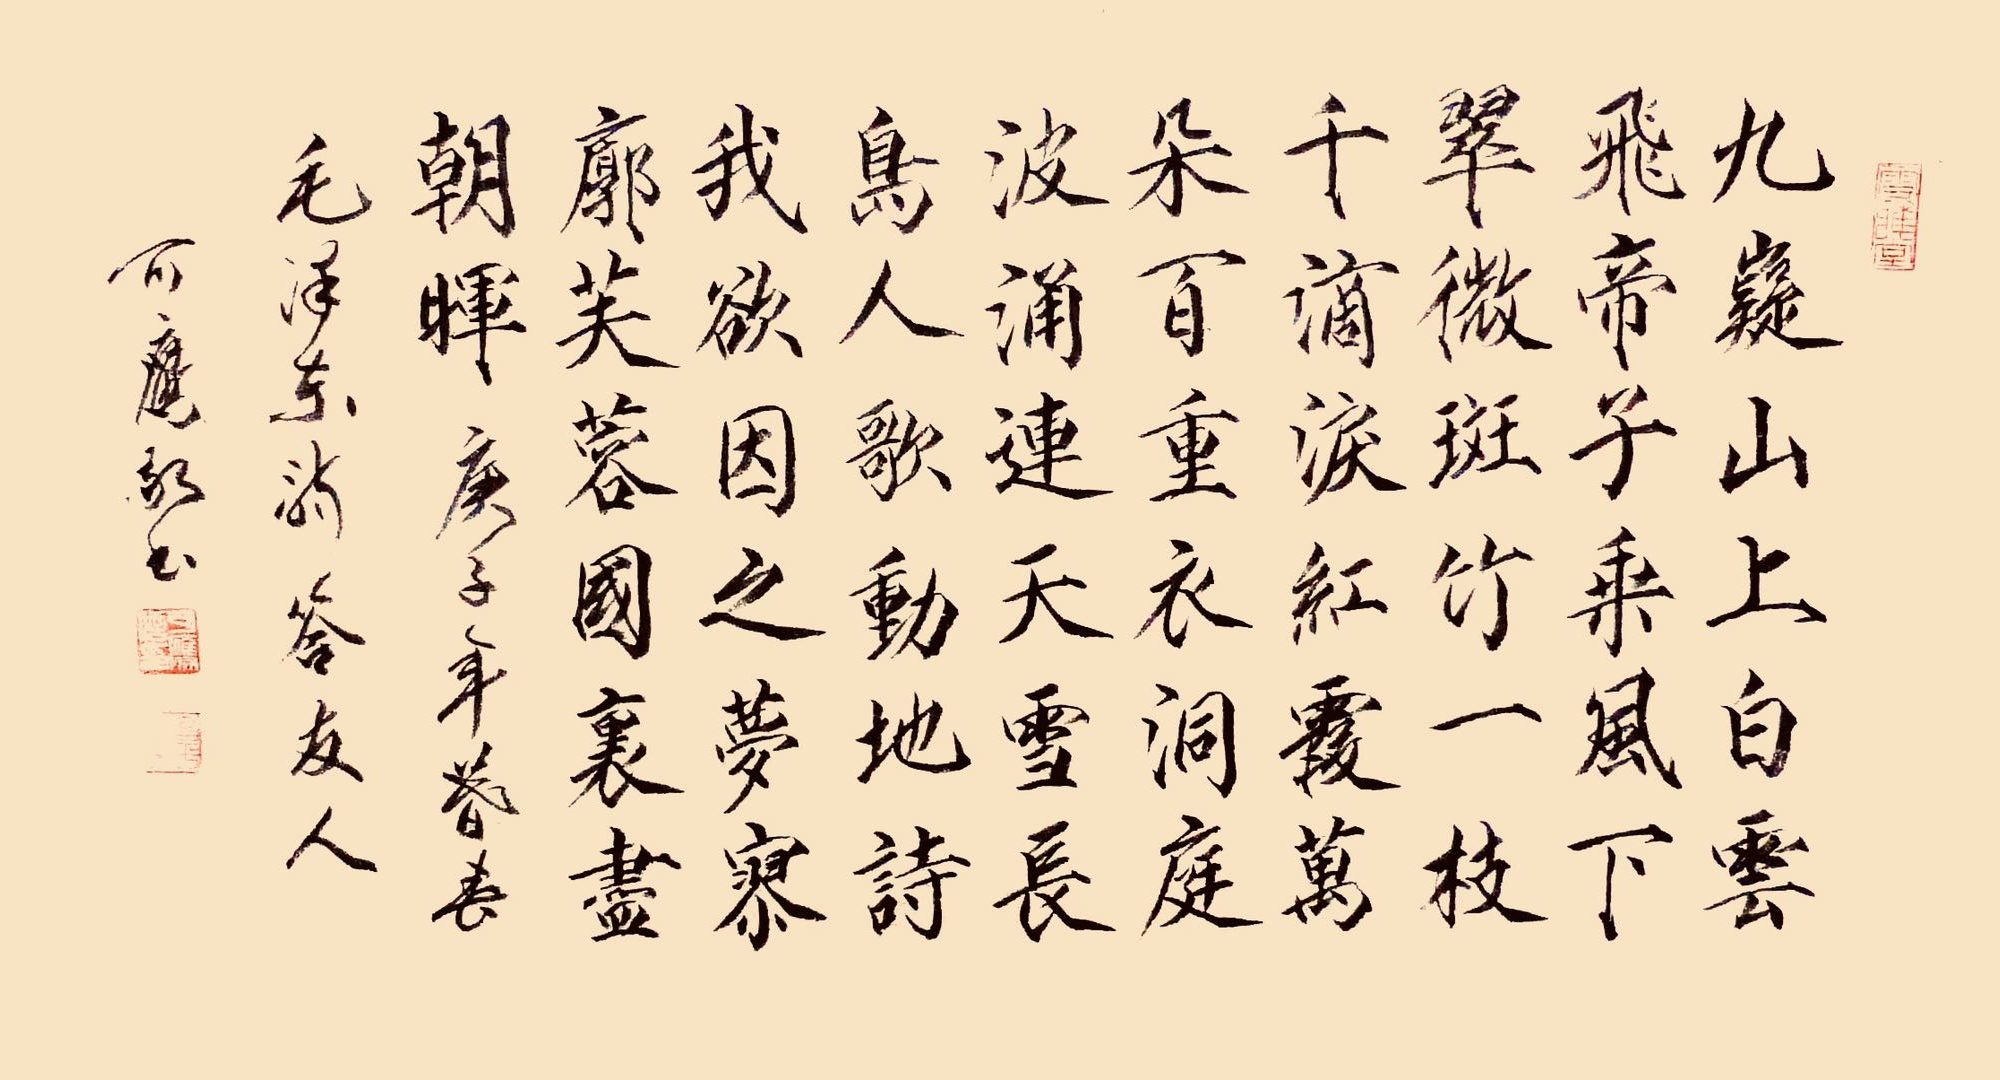 九嶷山上白雲
飛帝子乘風下
翠微斑竹一枝
千滴淚紅霞萬
朵百重衣洞庭
波涌連天雪長
島人歌動地詩
我欲因之夢寥
廓芙蓉國裏盡
朝暉 庚子年暮春
毛澤東詩 答友人
书